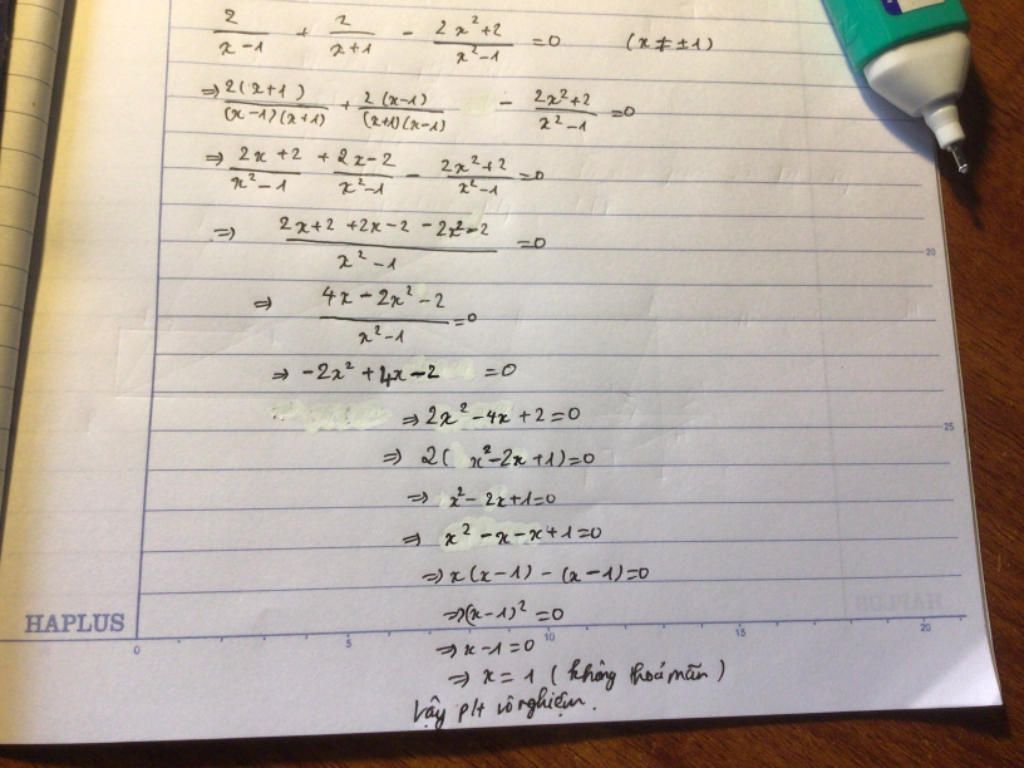 2/(x-1) + 2/(x+1) - (2x²+2)/(x²-1) =0 (x≠±1)
⇒ 2(x+1)/((x-1)(x+1)) + 2(x-1)/((x+1)(x-1)) - (2x²+2)/(x²-1) =0
⇒ (2x+2)/(x²-1) + (2x-2)/(x²-1) - (2x²+2)/(x²-1) =0
⇒ (2x+2+2x-2-2x²-2)/(x²-1) =0
20
⇒ (4x-2x²-2)/(x²-1) =0
⇒ -2x²+4x-2 =0
⇒ 2x²-4x+2=0
25
⇒ 2(x²-2x+1)=0
⇒ x²-2x+1=0
⇒ x²-x-x+1=0
⇒ x(x-1)-(x-1)=0
HAPLUS
⇒ (x-1)²=0
0 5 10 15 20
⇒ x-1=0
⇒ x=1 (không thoả mãn)
Vậy pt vô nghiệm.